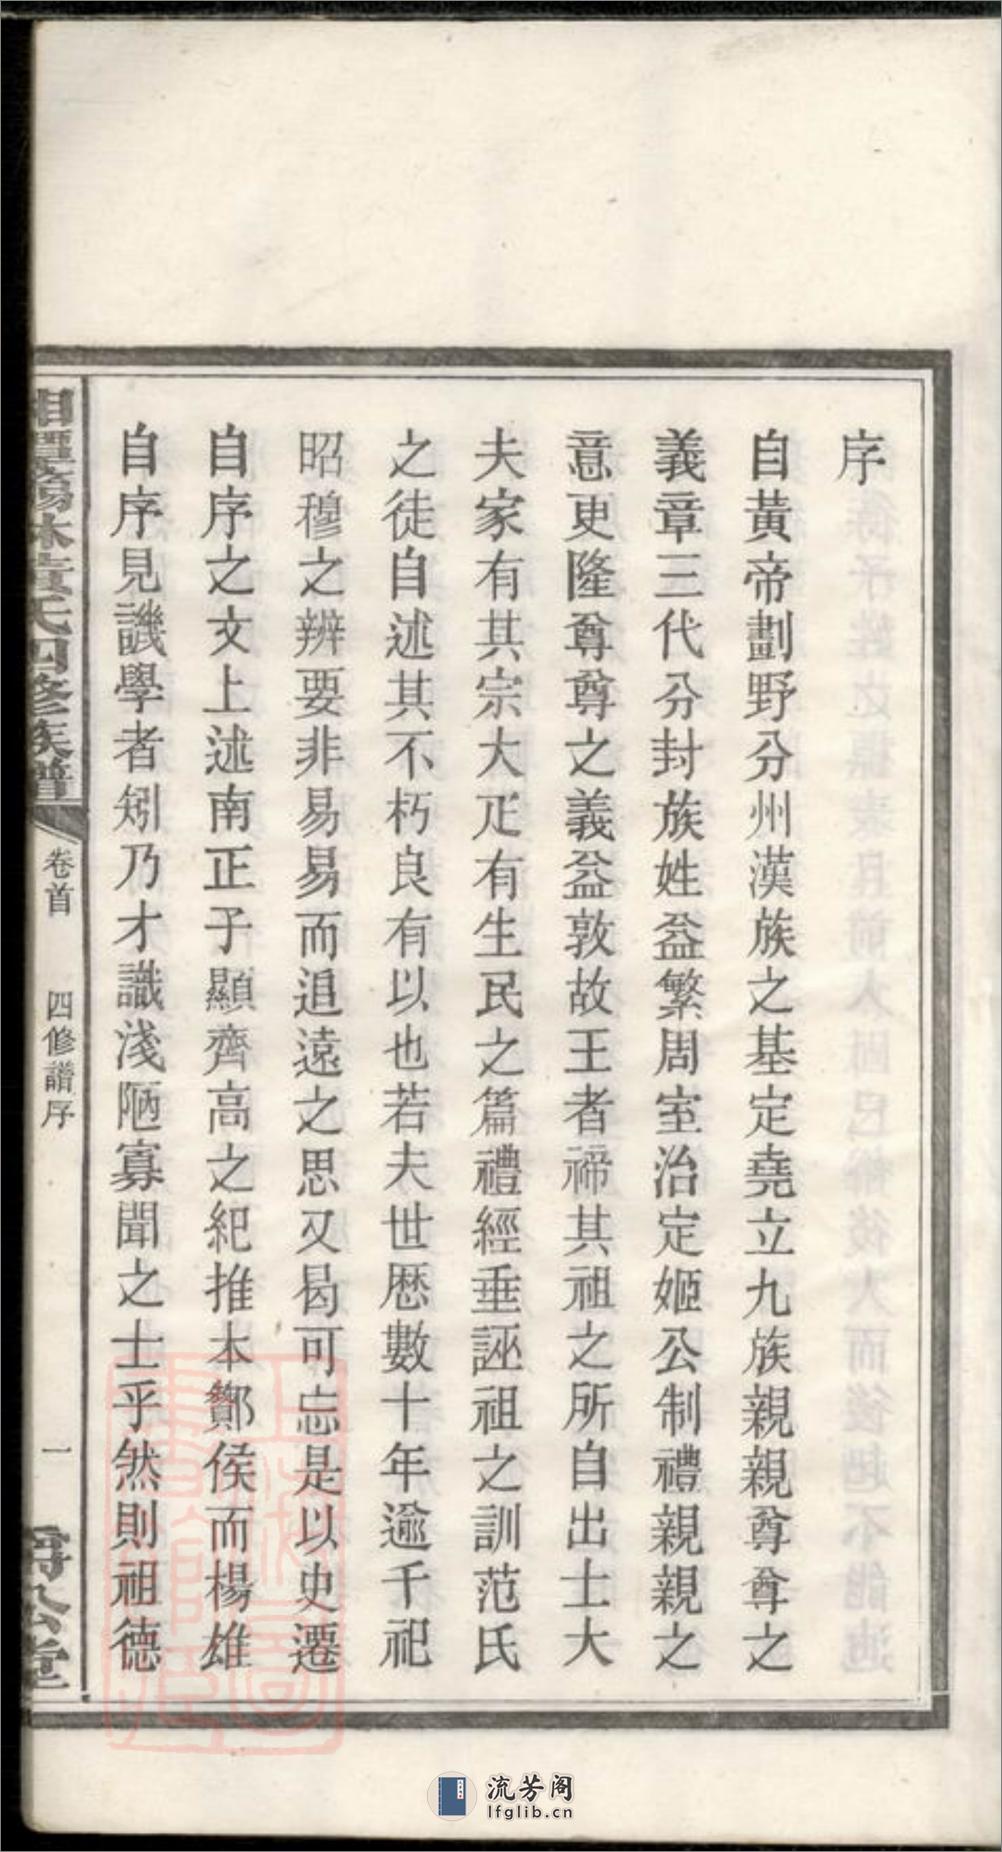 序
自黃帝劃野分州漢族之基定堯立九族親親尊尊之
義章三代分封族姓益繁周室治定姬公制禮親親之
意更隆尊尊之義益敦故王者禘其祖之所自出士大
夫家有其宗大疋有生民之篇禮經垂誣祖之訓范氏
之徒自述其不朽良有以也若夫世歷數十年逾千祀
昭穆之辨要非易易而追遠之思又曷可忘是以史遷
自序之文上述南正子顯齊高之紀推本酇侯而楊雄
自序見譏學者矧乃才識淺陋寡聞之士乎然則祖德
氏四修族譜
卷首
四修譜序
一
公堂
流芳阁
lfglib.cn